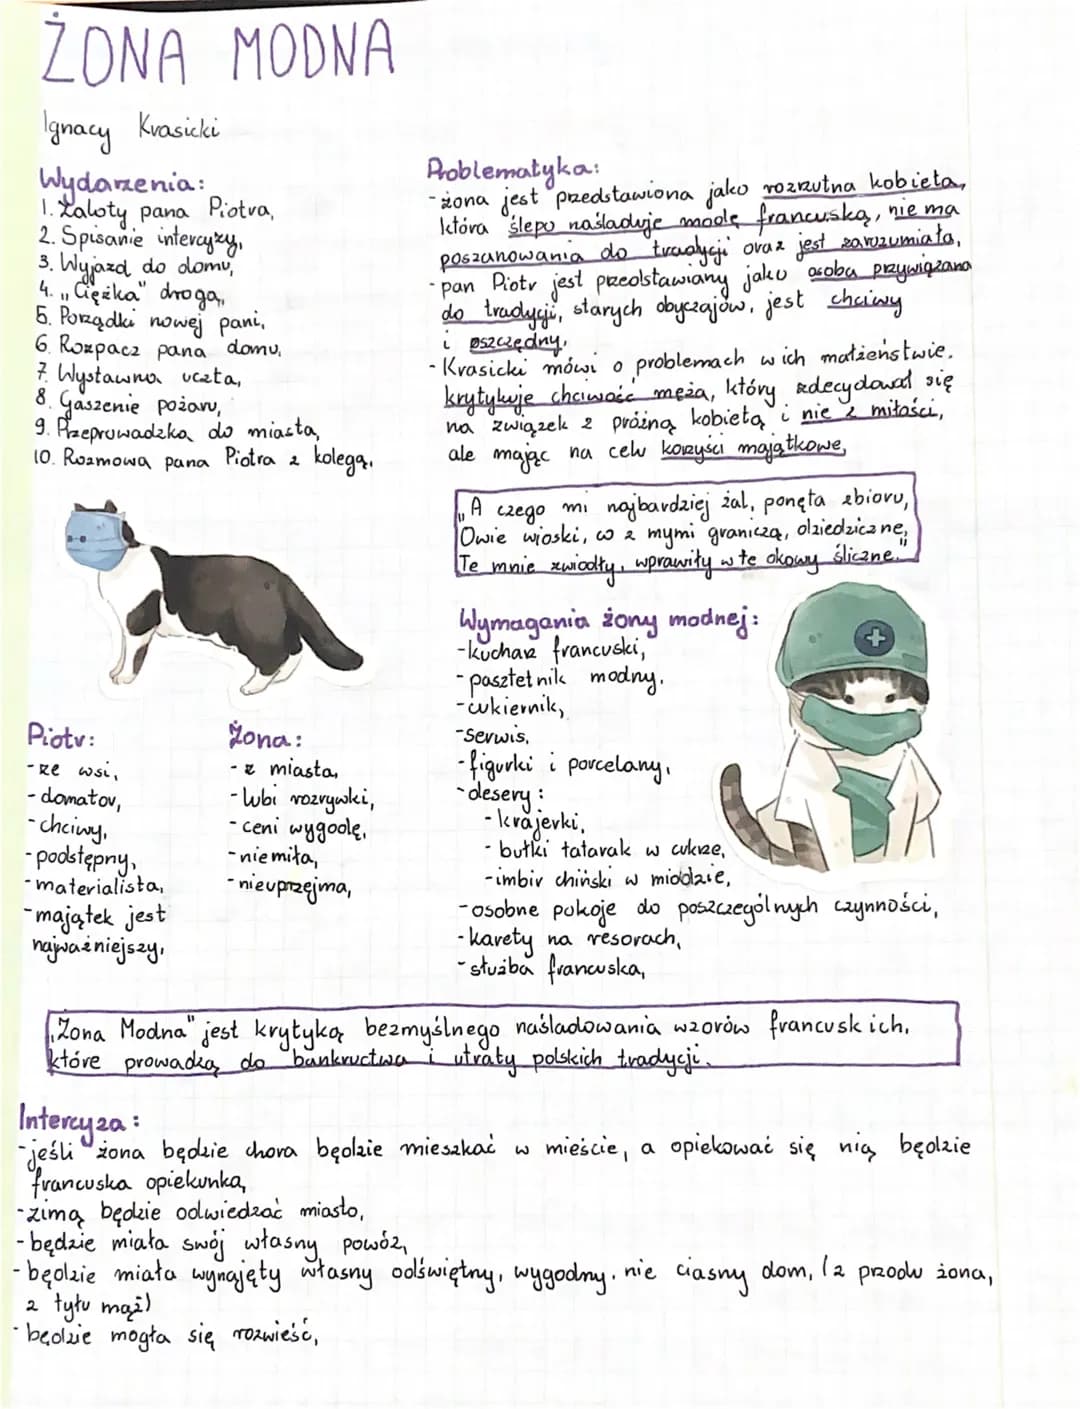 ŻONA MODNA
Ignacy Krasicki
Wydarzenia:
1. Zaloty pana Piotra,
2. Spisanie intercyzy,
3. Wyjazd do domu,
4. „Ciężka" droga,
5. Porządki nowej pani,
6. Rozpacz pana domu,
7. Wystawna uczta,
8. Gaszenie pożaru,
9. Przeprowadzka do miasta,
10. Rozmowa pana Piotra z kolegą,
Problematyka:
- żona jest przedstawiona jako rozrzutna kobieta,
która ślepo naśladuje modę francuską, nie ma
poszanowania do tradycji oraz jest zarozumiała,
- pan Piotr jest przedstawiany jako osoba przywiązana
do tradycji, starych obyczajów, jest chciwy
i oszczędny,
- Krasicki mówi o problemach w ich małżeństwie.
krytykuje chciwość męża, który zdecydował się
na związek z próżną kobietą i nie z miłości,
ale mając na celu korzyści majątkowe,
„A czego mi najbardziej żal, ponęta zbioru,
Owie wioski, co z mymi graniczą, dziedziczne,
Te mnie zwiodły, wprawiły w te okowy śliczne."
Wymagania żony modnej:
- kucharz francuski,
- pasztetnik modny,
- cukiernik,
- serwis,
- figurki i porcelany,
- desery:
- krajerki,
- bułki tatarak w cukrze,
- imbir chiński w miodzie,
- osobne pokoje do poszczególnych czynności,
- karety na resorach,
- służba francuska,
Piotr:
- ze wsi,
- domator,
- chciwy,
- podstępny,
- materialista,
- majątek jest
najważniejszy,
Żona:
- z miasta,
- lubi rozrywki,
- ceni wygodę,
- niemiła,
- nieuprzejma,
„Żona Modna" jest krytyką bezmyślnego naśladowania wzorów francuskich,
które prowadzą do bankructwa i utraty polskich tradycji.
Intercyza:
- jeśli żona będzie chora będzie mieszkać w mieście, a opiekować się nią będzie
francuska opiekunka,
- zimą będzie odwiedzać miasto,
- będzie miała swój własny powóz,
- będzie miała wynajęty własny odświętny, wygodny, nie ciasny dom, (z przodu żona,
z tyłu mąż)
- będzie mogła się rozwieść,